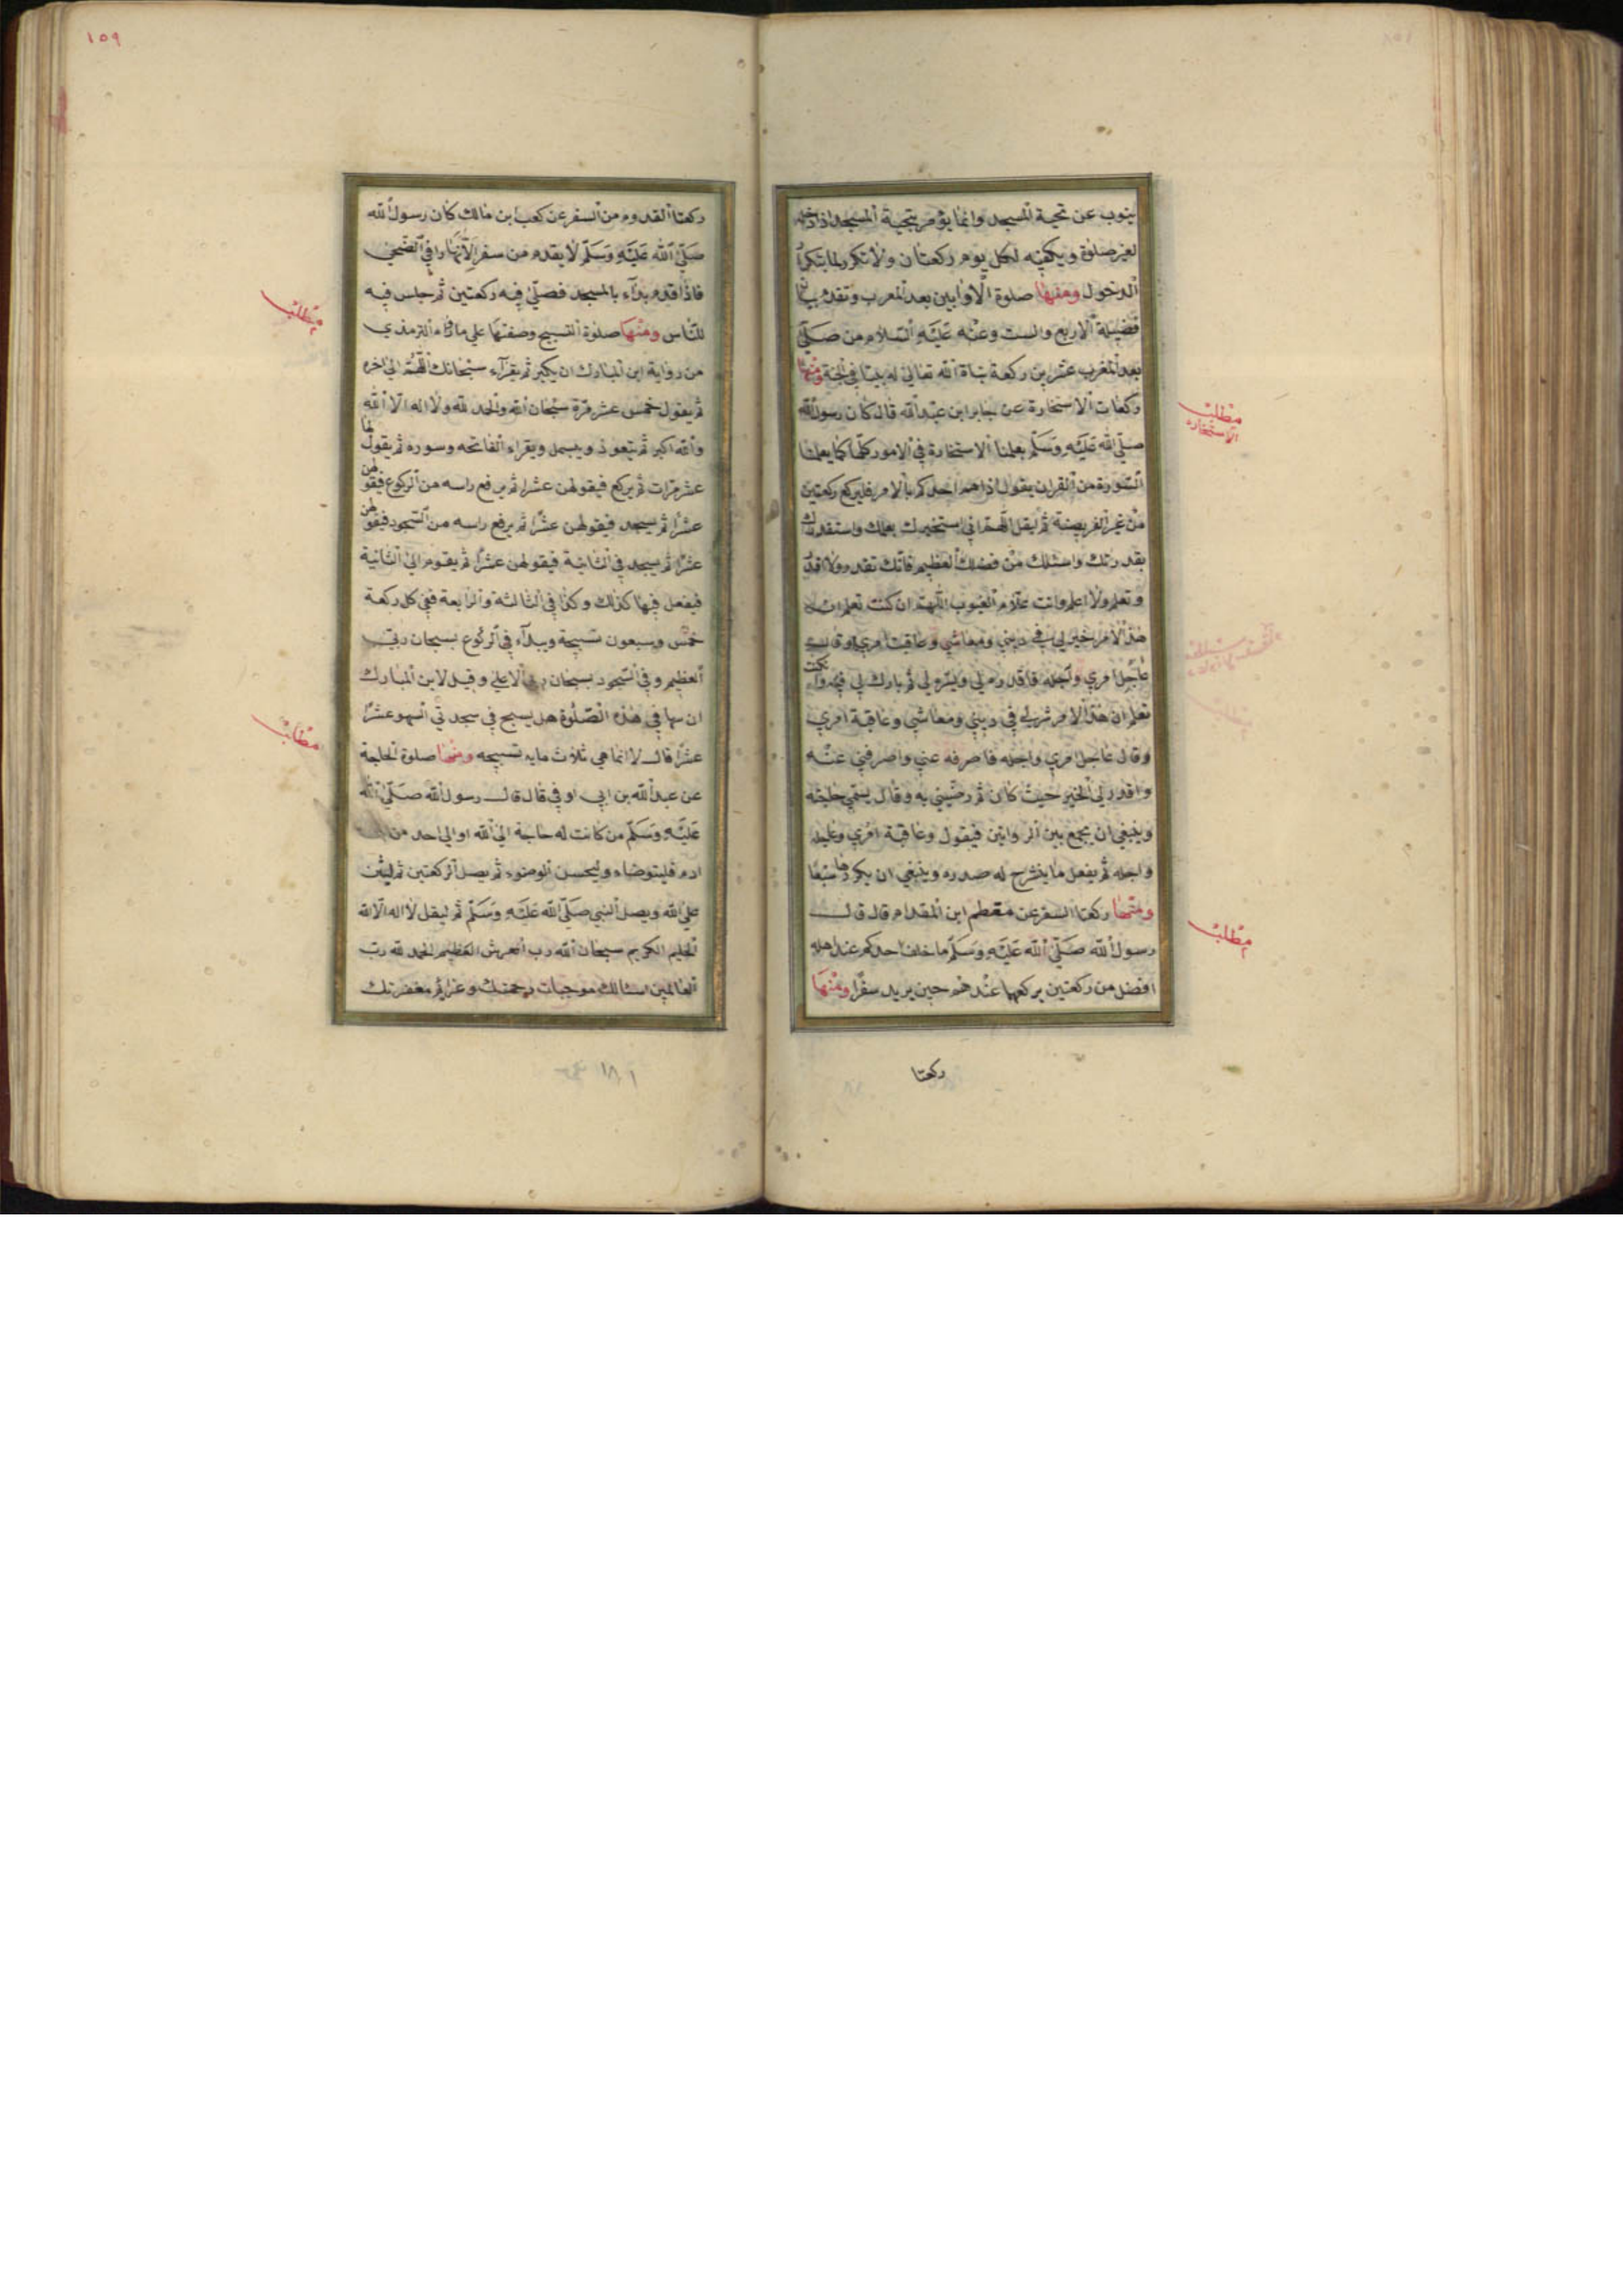 ينوب عن تحية المسجد وانما يؤمر بتحية المسجد اذا دخله
لغير صلوة ويكفيه لكل يوم ركعتان ولا تتكرر بتكرر
الدخول ومنها صلوة الاوابين بعد المغرب وتقدم بيان
فضيلة الاربع والست وعنه عليه السلام من صلى
بعد المغرب عشرين ركعة بناة الله تعالى له بيتا في الجنة ومنها
ركعات الاستخارة عن جابر ابن عبد الله قال كان رسول الله
مطلب
الاستخاره
صلى الله عليه وسلم يعلمنا الاستخارة في الامور كلها كما يعلمنا
السورة من القران يقول اذا هم احدكم بالامر فليركع ركعتين
من غير الفريضة ثم ليقل اللهم اني استخيرك بعلمك واستقدرك
بقدرتك واسئلك من فضلك العظيم فانك تقدر ولا اقدر
وتعلم ولا اعلم وانت علام الغيوب اللهم ان كنت تعلم ان
هذا الامر خير لي في ديني ومعاشي وعاقبة امري او قال
عاجل امري واجله فاقدره لي ويسره لي ثم بارك لي فيه وان كنت
تعلم ان هذا الامر شر لي في ديني ومعاشي وعاقبة امري
وقال عاجل امري واجله فاصرفه عني واصرفني عنه
واقدر لي الخير حيث كان ثم رضيني به وقال يسمي حاجته
وينبغي ان يجمع بين الروايتين فيقول وعاقبة امري وعاجله
واجله ثم يفعل ما ينشرح له صدره وينبغي ان يكررها سبعا
ومنها ركعتا السفر عن مقطم ابن المقدام قال قال
مطلب
رسول الله صلى الله عليه وسلم ما خلف احدكم عند اهله
افضل من ركعتين يركعهما عندهم حين يريد سفرا ومنها
ركعتا
١٥٩
ركعتا القدوم من السفر عن كعب ابن مالك كان رسول الله
صلى الله عليه وسلم لا يقدم من سفر الا نهارا في الضحى
فاذا قدم بداء بالمسجد فصلى فيه ركعتين ثم جلس فيه
مطلب
للناس ومنها صلوة التسبيح وصفتها على ما ذكره الترمذي
من رواية ابن المبارك ان يكبر ثم يقراء سبحانك اللهم الى اخره
ثم يقول خمس عشر مرة سبحان الله والحمد لله ولا اله الا الله
والله اكبر ثم يتعوذ ويبسمل ويقراء الفاتحه وسوره ثم يقولها
عشر مرات ثم يركع فيقولهن عشرا ثم يرفع راسه من الركوع فيقولهن
عشرا ثم يسجد فيقولهن عشرا ثم يرفع راسه من السجود فيقولهن
عشرا ثم يسجد في الثانية فيقولهن عشرا ثم يقوم الى الثانية
فيفعل فيها كذلك وكذا في الثالثه والرابعة ففي كل ركعة
خمس وسبعون تسبيحة ويبداء في الركوع بسبحان ربي
العظيم وفي السجود بسبحان ربي الاعلى وقيل لابن المبارك
ان سها في هذه الصلوة هل يسبح في سجدتي السهو عشرا
مطلب
عشرا قال لا انما هي ثلاث مايه تسبيحه ومنها صلوة الحاجة
عن عبد الله بن ابي اوفى قال قال رسول الله صلى الله
عليه وسلم من كانت له حاجة الى الله او الى احد من
ادم فليتوضاء وليحسن الوضوء ثم يصل الركعتين ثم ليثن
على الله ويصل النبي صلى الله عليه وسلم ثم ليقل لا اله الا الله
الحليم الكريم سبحان الله رب العرش العظيم الحمد لله رب
العالمين اسئالك موجبات رحمتك وعزايم مغفرتك